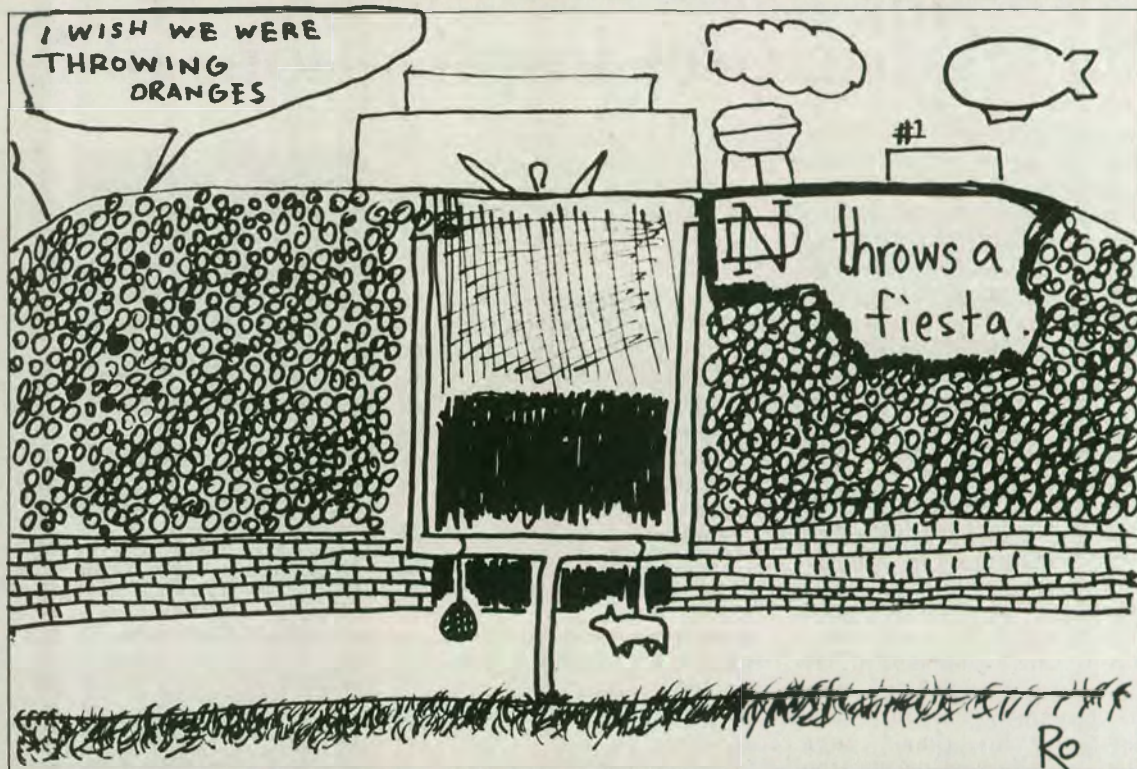 I WISH WE WERE
THROWING
ORANGES
#1
ND throws a
fiesta.
Ro